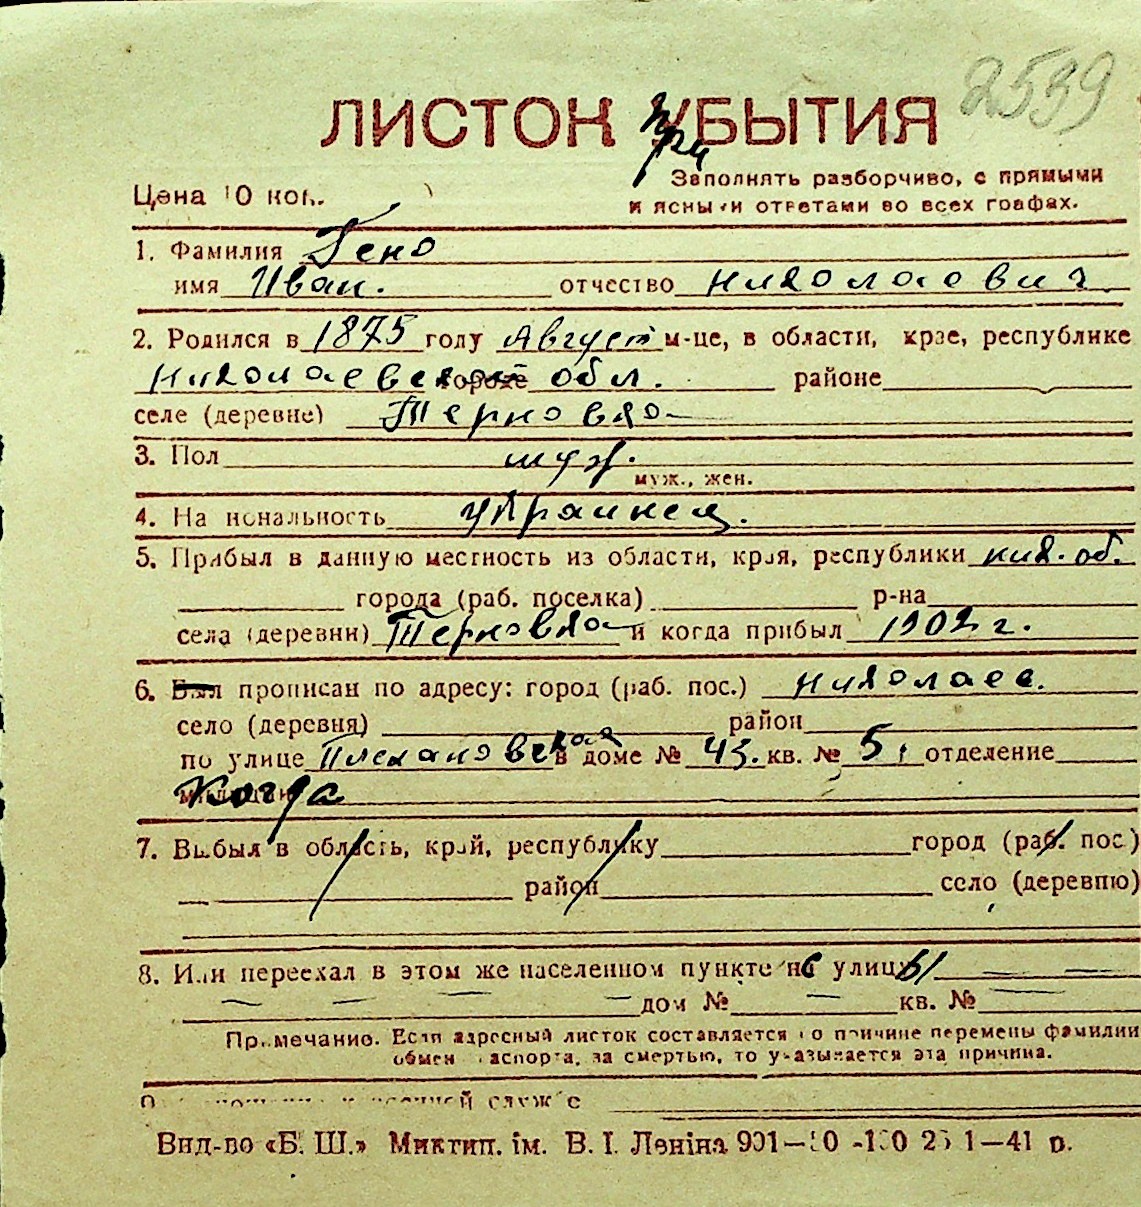 2539
ЛИСТОК при УБЫТИЯ
Цена 10 коп.
Заполнять разборчиво, с прямыми
и ясными ответами во всех графах.
1. Фамилия Гено
имя Иван. отчество Николаевич
2. Родился в 1875 году Август м-це, в области, крае, республике
Николаевской городе обл. районе
селе (деревне) Терновка
3. Пол муж.
муж., жен.
4. Национальность украинец.
5. Прибыл в данную местность из области, края, республики ник. об.
города (раб. поселка) р-на
села (деревни) Терновка и когда прибыл 1902 г.
6. Был прописан по адресу: город (раб. пос.) Николаев.
село (деревня) район
по улице Плехановская в доме № 43. кв. № 5, отделение
милиции Когда
7. Выбыл в область, край, республику город (раб. пос.)
район село (деревню)
8. Или переехал в этом же населенном пункте с улицы
дом № кв. №
Примечание. Если адресный листок составляется по причине перемены фамилии
обмен паспорта, за смертью, то указывается эта причина.
службе
Вид-во «Б. Ш.» Миктип. ім. В. І. Леніна 901— 1—41 р.